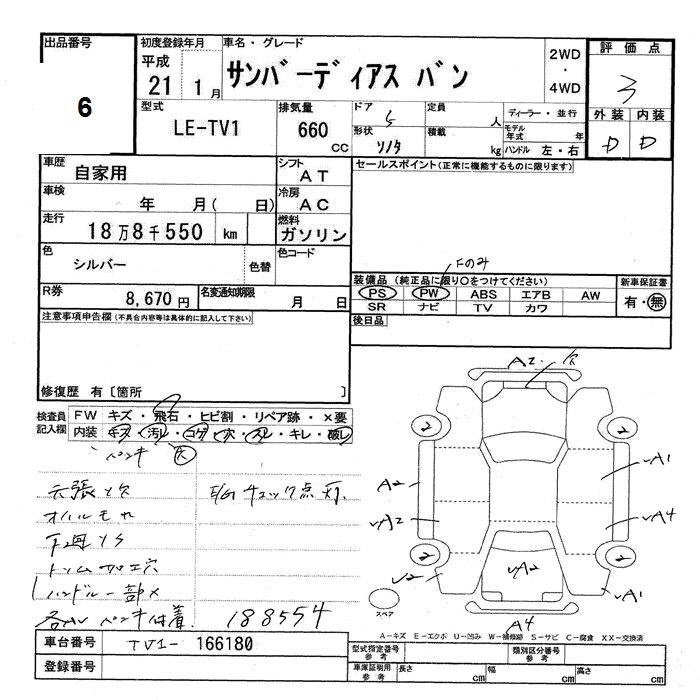 出品番号
6
初度登録年月
平成
21 1月
車名・グレード
サンバーディアス バン
2WD
・
4WD
評価点
3
外装 内装
D D
型式
LE-TV1
排気量
660
CC
ドア
5
形状
定員
人
積載
kg
ディーラー・並行
モデル年式
年
ハンドル 左・右
車歴
自家用
シフト
AT
車検
年 月( 日)
冷房
AC
走行
18万8千550 km
燃料
ガソリン
色
シルバー
色替
色コード
R券
8,670円
名変通知期限
月 日
セールスポイント(正常に機能するものに限ります)
Fのみ
装備品(純正品に限り○をつけてください)
PS PW ABS エアB AW
SR ナビ TV カワ
新車保証書
有・無
後日品
注意事項申告欄(不具合内容等は具体的に記入して下さい)
修復歴 有〔箇所 〕
検査員
記入欄
FW キズ・飛石・ヒビ割・リペア跡・×要
内装 キズ・汚レ・コゲ・穴・スレ・キレ・破レ
ペンキ 大
天張 欠
E/Gチェック点灯
下廻
トリム加工穴
ハンドル一部
ペンキ付着 188554
A2 欠
2
2
A2
√A1
√A2
√A4
2
2
√2
√A2
√A1
スペア
A4
A-キズ E-エクボ U-凹み W-補修跡 S-サビ C-腐食 XX-交換済
車台番号
TV1- 166180
登録番号
型式指定番号
参考
類別区分番号
参考
車庫証明用
参考
長さ cm
幅 cm
高さ cm